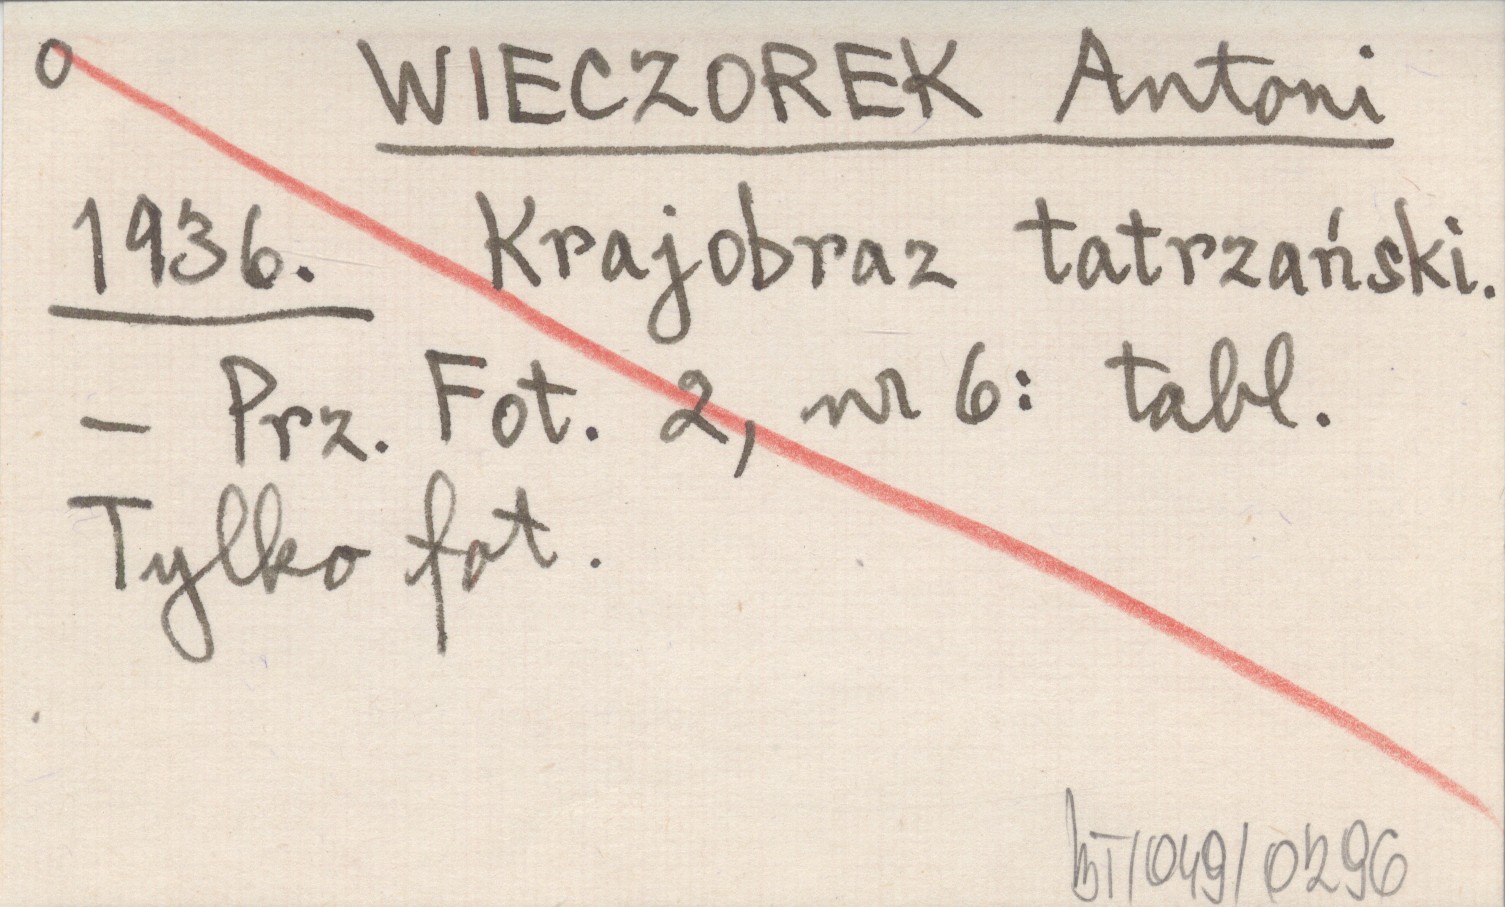 O WIECZOREK Antoni
1936. Krajobraz tatrzański.
– Prz. Fot. 2, nr 6: tabl.
Tylko fot.
BT/049/0296